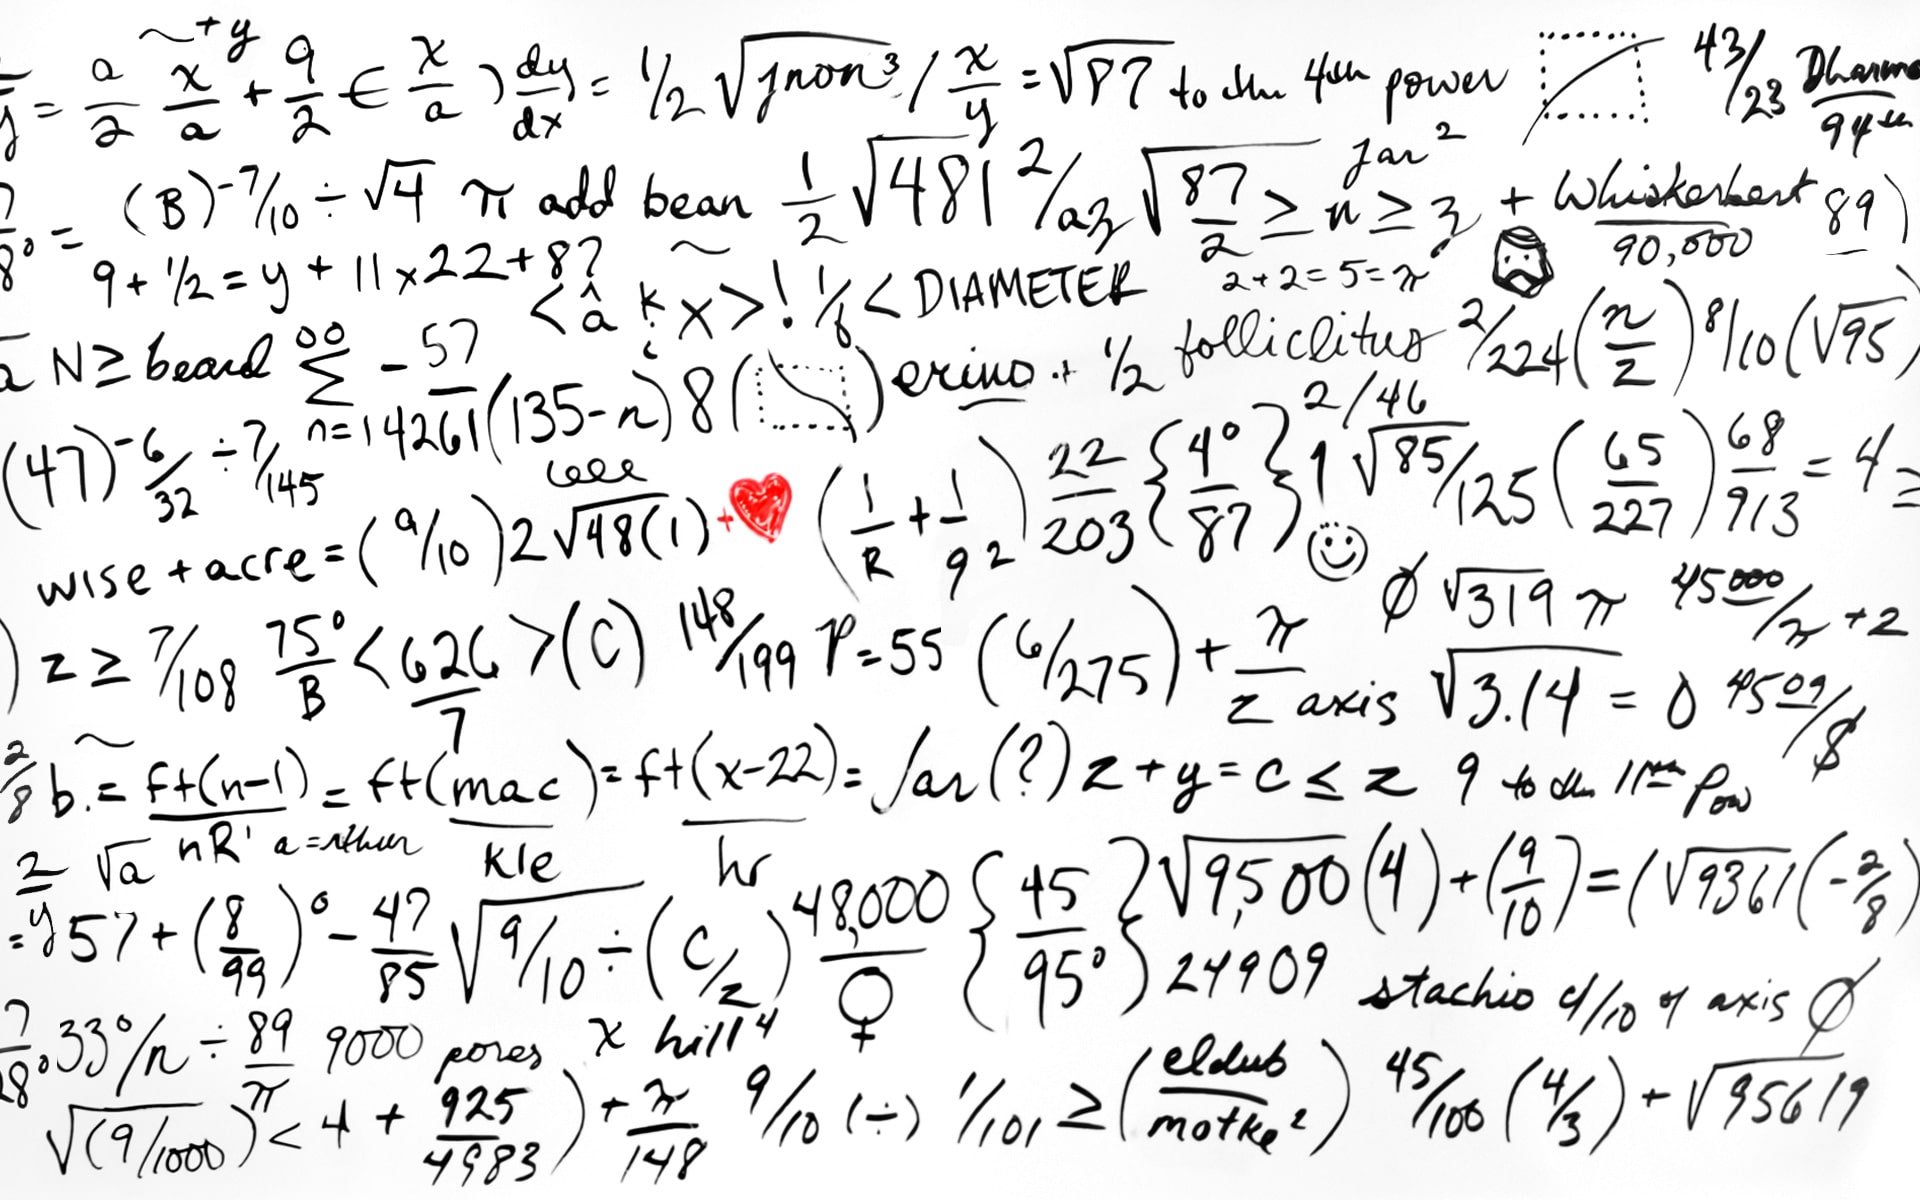 ~+y
= a/2 x/a + 9/2 ∈ x/a ) dy/dx = 1/2 √jnon³ / x/y = √87 to the 4th power 43/23 Dharma/94th
7/8° = (B)^-7/10 ÷ √4 π add bean 1/2 √481 2/az √87/2 ≥ n ≥ z jar² + Whiskerbert/90,000 89)
9 + 1/2 = y + 11 x 22 + 8? ~ <â k x>! 1/6 < DIAMETER 2+2=5=π
a N ≥ beard ∞ Σ n= -57/14261 (135-n) 8 ( ) erino + 1/2 folliclitus 2/224 (n/z) 8/10 (√95
(47)^-6/32 ÷ 7/145 (1/R + 1/9 2) 22/203 {4°/87} 2/46 1 √85/125 (65/227) 68/913 = 4 ≥
wise + acre = (9/10) 2 √48(1) + ❤ ☺ ∅ √319 π 45000/π + 2
) z ≥ 7/108 75°/B < 626/7 > (C) 148/199 P=55 (6/275) + π/z axis √3.14 = 0 4509/$
2/8 b. = ft(n-1)/nR' = ft(mac/kle) = ft(x-22)/hr = far (?) z + y = c ≤ z 9 to the 11th pow
2/y √a a =
= y 57 + (8/99)° - 47/85 √9/10 ÷ (c/z) 48,000/♀ {45/95°} √9,500 (4) + (9/10) = (√9361 (-2/8)
24909 stachio 4/10 of axis ∅
7/28° .33°/n ÷ 89/π 9000 pores x hill⁴
√(9/1000) < 4 + 925/4983) + π/148 9/10 (÷) 1/101 ≥ (eldub/motke²) 45/100 (4/3) + √95619